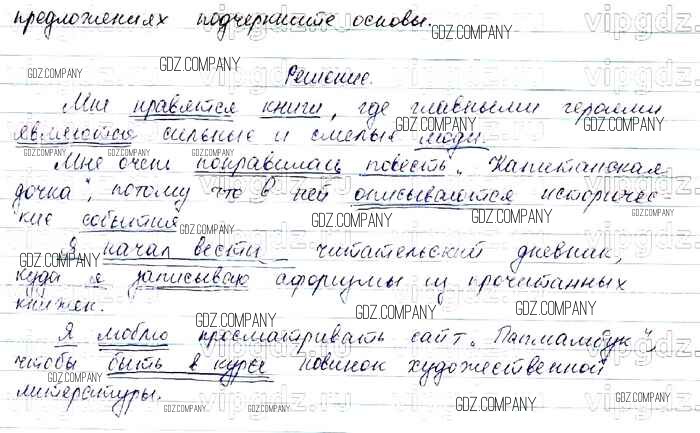 предложениях подчеркните основы.
Решение.
Мне нравятся книги, где главными героями
являются сильные и смелые люди.
Мне очень понравилась повесть „Капитанская
дочка", потому что в ней описываются историчес-
кие события.
Я начал вести читательский дневник,
куда я записываю афоризмы из прочитанных
книжек.
Я люблю просматривать сайт „Папмамбук",
чтобы быть в курсе новинок художественной
литературы.
GDZ.COMPANY
vipgdz.ru